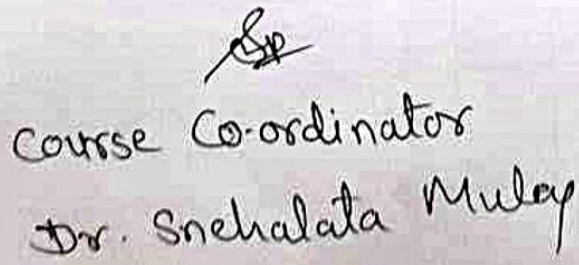 Course Co-ordinator
Dr. Snehalata Mulay